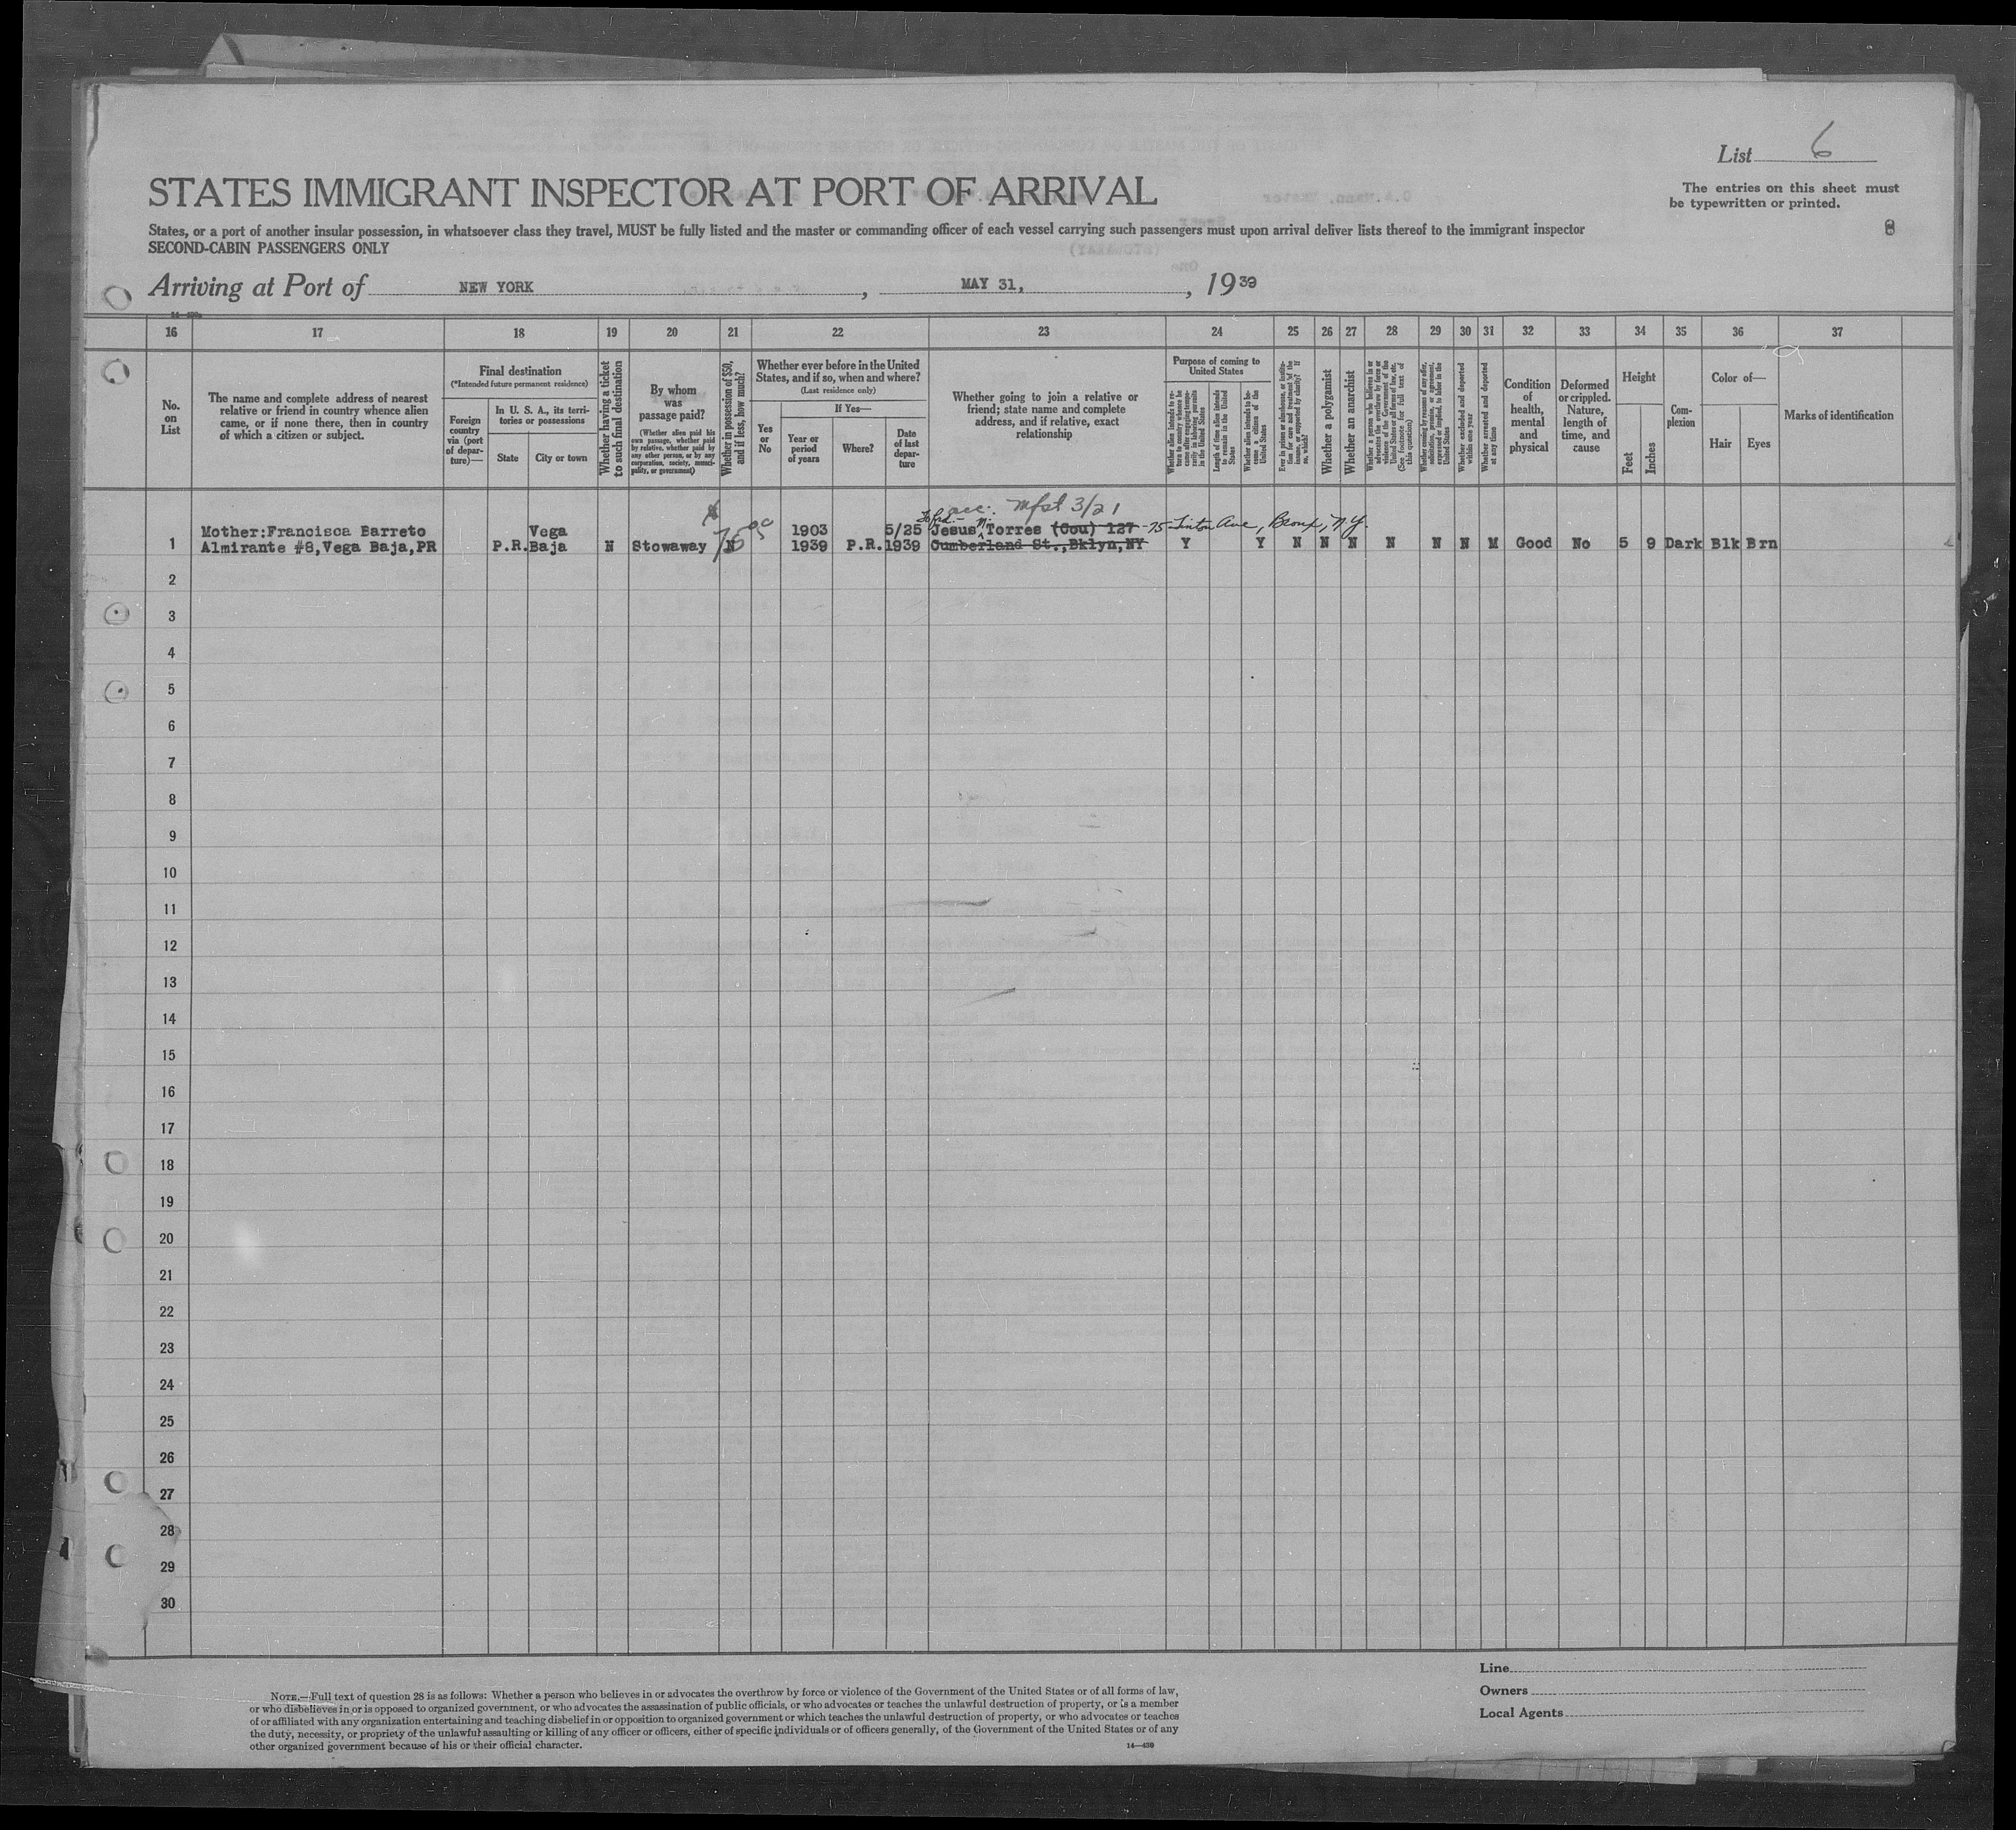 List 6
STATES IMMIGRANT INSPECTOR AT PORT OF ARRIVAL
The entries on this sheet must
be typewritten or printed.
States, or a port of another insular possession, in whatsoever class they travel, MUST be fully listed and the master or commanding officer of each vessel carrying such passengers must upon arrival deliver lists thereof to the immigrant inspector
8
SECOND-CABIN PASSENGERS ONLY
Arriving at Port of NEW YORK, MAY 31, 1939
16 17 18 19 20 21 22 23 24 25 26 27 28 29 30 31 32 33 34 35 36 37
No. on List
The name and complete address of nearest
relative or friend in country whence alien
came, or if none there, then in country
of which a citizen or subject.
Final destination
(*Intended future permanent residence)
Foreign country via (port of departure)—
In U. S. A., its territories or possessions
State
City or town
Whether having a ticket to such final destination
By whom was passage paid?
(Whether alien paid his own passage, whether paid by relative, whether paid by any other person, or by any corporation, society, municipality, or government)
Whether in possession of $50, and if less, how much?
Whether ever before in the United States, and if so, when and where?
(Last residence only)
Yes or No
If Yes—
Year or period of years
Where?
Date of last departure
Whether going to join a relative or
friend; state name and complete
address, and if relative, exact
relationship
Purpose of coming to United States
Whether alien intends to return to country whence he came after engaging temporarily in laboring pursuits in the United States
Length of time alien intends to remain in the United States
Whether alien intends to become a citizen of the United States
Ever in prison or almshouse, or institution for care and treatment of the insane, or supported by charity? If so, which?
Whether a polygamist
Whether an anarchist
Whether a person who believes in or advocates the overthrow by force or violence of the Government of the United States or all forms of law, etc. (See footnote for full text of this question)
Whether coming by reason of any offer, solicitation, promise, or agreement, expressed or implied, to labor in the United States
Whether excluded and deported within one year
Whether arrested and deported at any time
Condition of health, mental and physical
Deformed or crippled. Nature, length of time, and cause
Height
Feet
Inches
Complexion
Color of—
Hair
Eyes
Marks of identification
acc. Mfst 3/21
Mother:Francisca Barreto Vega 1903 5/25 Jesus N. Torres (Cou) 127 - 75 Tinton Ave, Bronx, N.Y.
1 Almirante #8,Vega Baja,PR P.R. Baja N Stowaway N 75 00 1939 P.R. 1939 Cumberland St.,Bklyn,NY Y Y N N N N N N M Good No 5 9 Dark Blk Brn
2
3
4
5
6
7
8
9
10
11
12
13
14
15
16
17
18
19
20
21
22
23
24
25
26
27
28
29
30
Line
Owners
Local Agents
NOTE.—Full text of question 28 is as follows: Whether a person who believes in or advocates the overthrow by force or violence of the Government of the United States or of all forms of law,
or who disbelieves in or is opposed to organized government, or who advocates the assassination of public officials, or who advocates or teaches the unlawful destruction of property, or is a member
of or affiliated with any organization entertaining and teaching disbelief in or opposition to organized government or which teaches the unlawful destruction of property, or who advocates or teaches
the duty, necessity, or propriety of the unlawful assaulting or killing of any officer or officers, either of specific individuals or of officers generally, of the Government of the United States or of any
other organized government because of his or their official character.
14—430